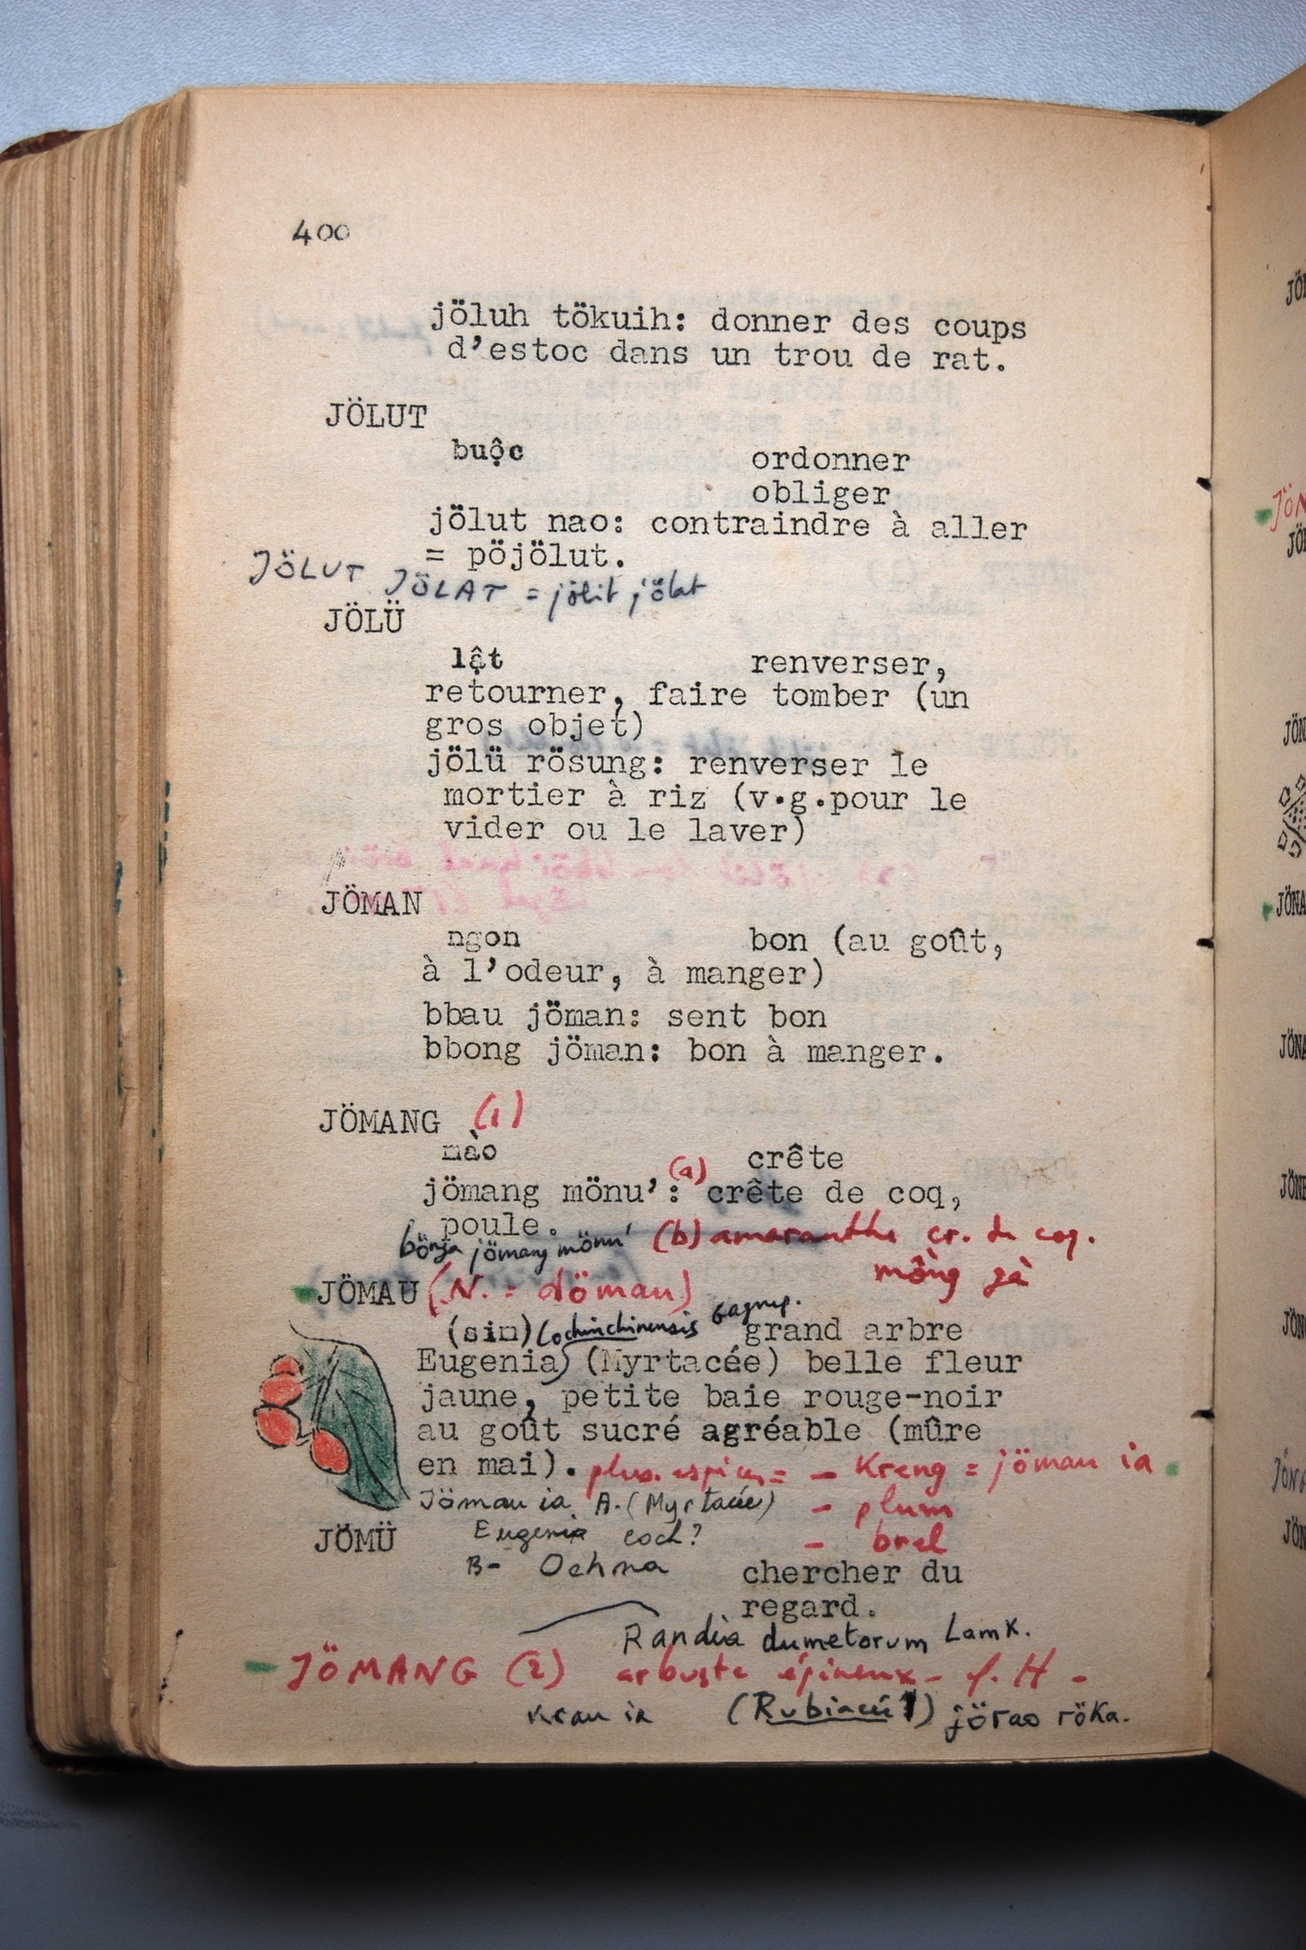 400
jöluh tökuih: donner des coups
d'estoc dans un trou de rat.
JÖLUT
buộc ordonner
obliger
jölut nao: contraindre à aller
= pöjölut.
JÖLUT JÖLAT = jölit jölat
JÖLÜ
lật renverser,
retourner, faire tomber (un
gros objet)
jölü rösung: renverser le
mortier à riz (v.g.pour le
vider ou le laver)
JÖMAN
ngon bon (au goût,
à l'odeur, à manger)
bbau jöman: sent bon
bbong jöman: bon à manger.
JÖMANG (1)
mào crête
jömang mönu': (a) crête de coq,
poule.
bönga jömang mönu' (b) amaranthe cr. de coq.
mồng gà
JÖMAU (N. = dömau)
(sim) Cochinchinensis Gagnep. grand arbre
Eugenia) (Myrtacée) belle fleur
jaune, petite baie rouge-noir
au goût sucré agréable (mûre
en mai). plus. espèces = - Kreng = jömau ia
Jömau ia A. (Myrtacée) - plum
Eugenia coch? - brel
JÖMÜ
B- Ochna chercher du
regard.
Randia dumetorum Lamk.
JÖMANG (2) arbuste épineux - f. H -
krau ia (Rubiacée) jörao röka.
JÖN
JÖN
JÖNA
JÖNA
JÖNE
JÖNG
JÖNG
JÖN